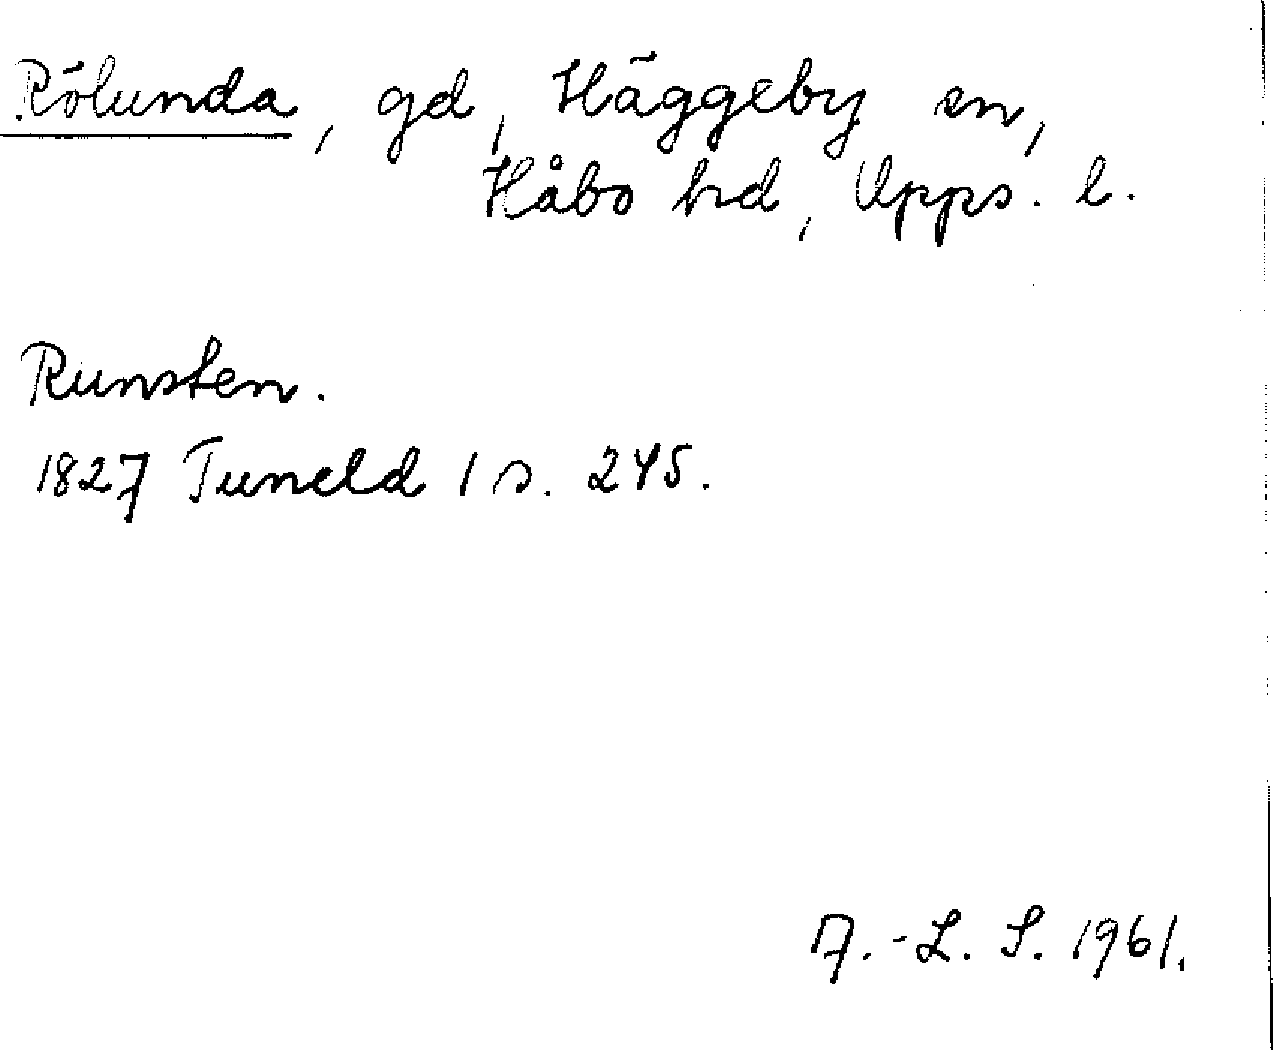 Rölunda, gd, Häggeby sn,
Håbo hd, Upps. l.
Runsten.
1827 Tuneld 1 s. 245.
A.-L. S. 1961.